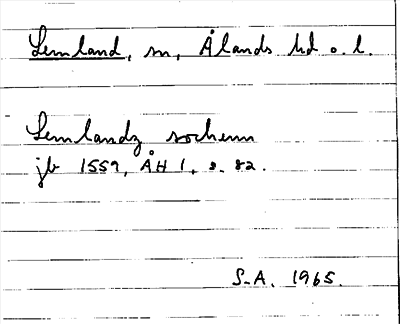 Lemland, sn, Ålands hd o. l.
Lemlandz sochenn
jb 1559, ÅH 1, s. 82.
S-A. 1965.